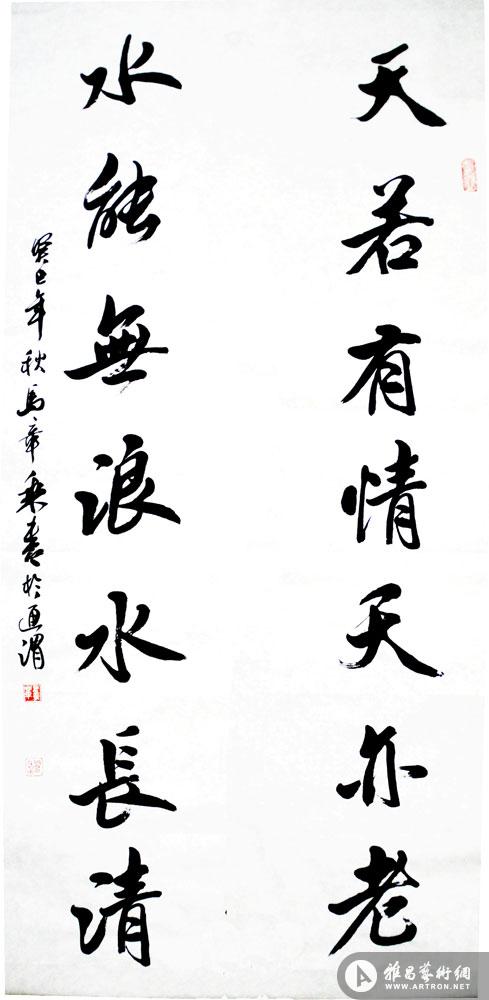 天若有情天亦老
水能無浪水長清
癸巳年秋馬章乘書於通渭
雅昌藝術網
WWW.ARTRON.NET